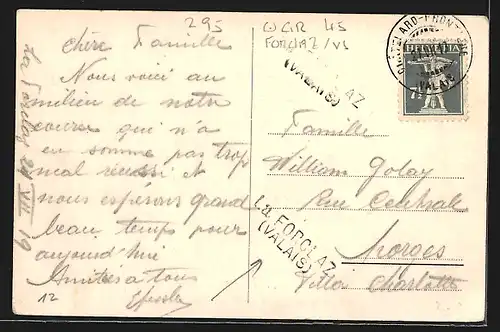 295
W GIR 45
FORCLAZ/VS
La Forclaz 24 VII 19
Chère Famille
Nous voici au
milieu de notre
course qui n'a
en somme pas trop
mal réussi et
nous espérons grand
beau temps pour
aujourd'hui
Amitiés a tous
12
LA FORCLAZ
(VALAIS)
CHÂTELARD-FRONTIÈRE
(VALAIS)
HELVETIA
7½
Famille
William Golay
Rue Centrale
Morges
Villa Charlotte
LA FORCLAZ
(VALAIS)